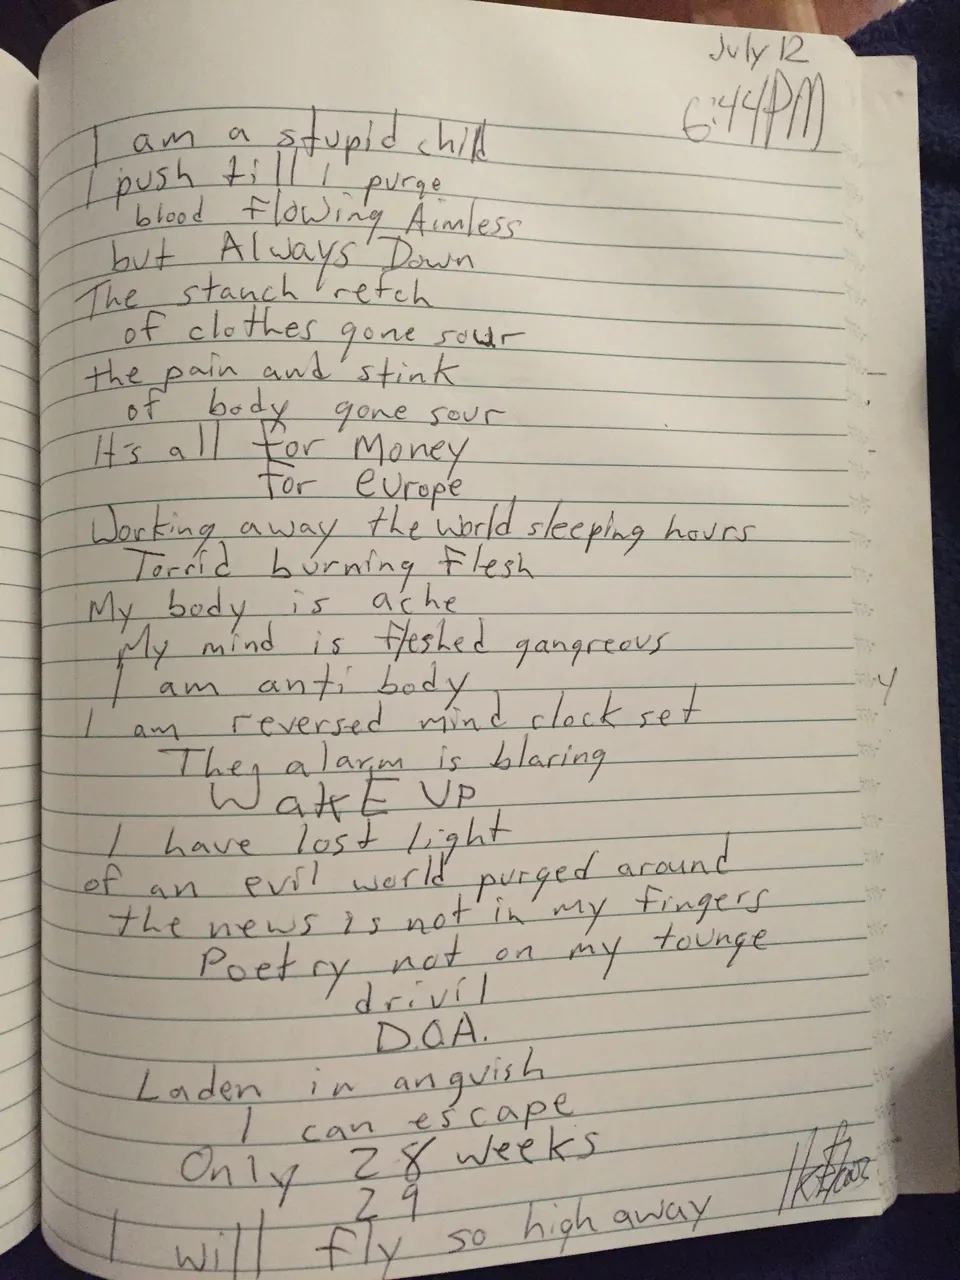 July 12
6:44PM
I am a stupid child
I push till I purge
blood flowing Aimless
but Always Down
The stanch retch
of clothes gone sour
the pain and stink
of body gone sour
It's all for Money
For europe
Working away the world sleeping hours
Torrid burning flesh
My body is ache
My mind is fleshed gangreous
I am anti body
I am reversed mind clock set
The alarm is blaring
WakE UP
I have lost light
of an evil world purged around
the news is not in my fingers
Poetry not on my tounge
drivil
D.O.A.
Laden in anguish
I can escape
Only 28 weeks
29
I will fly so high away